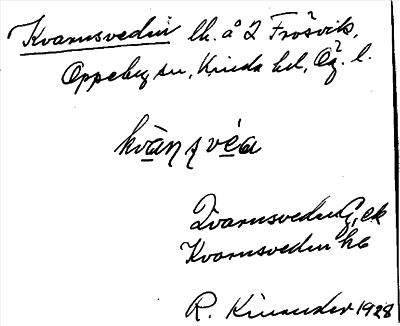 Kvarnsveden lh. å 2 Frösvik,
Oppeby sn, Kinda hd, Ög. l.
kvànsvéa
Qvarnsveden G, ek
Kvarnsveden hb
R. Kinander 1928